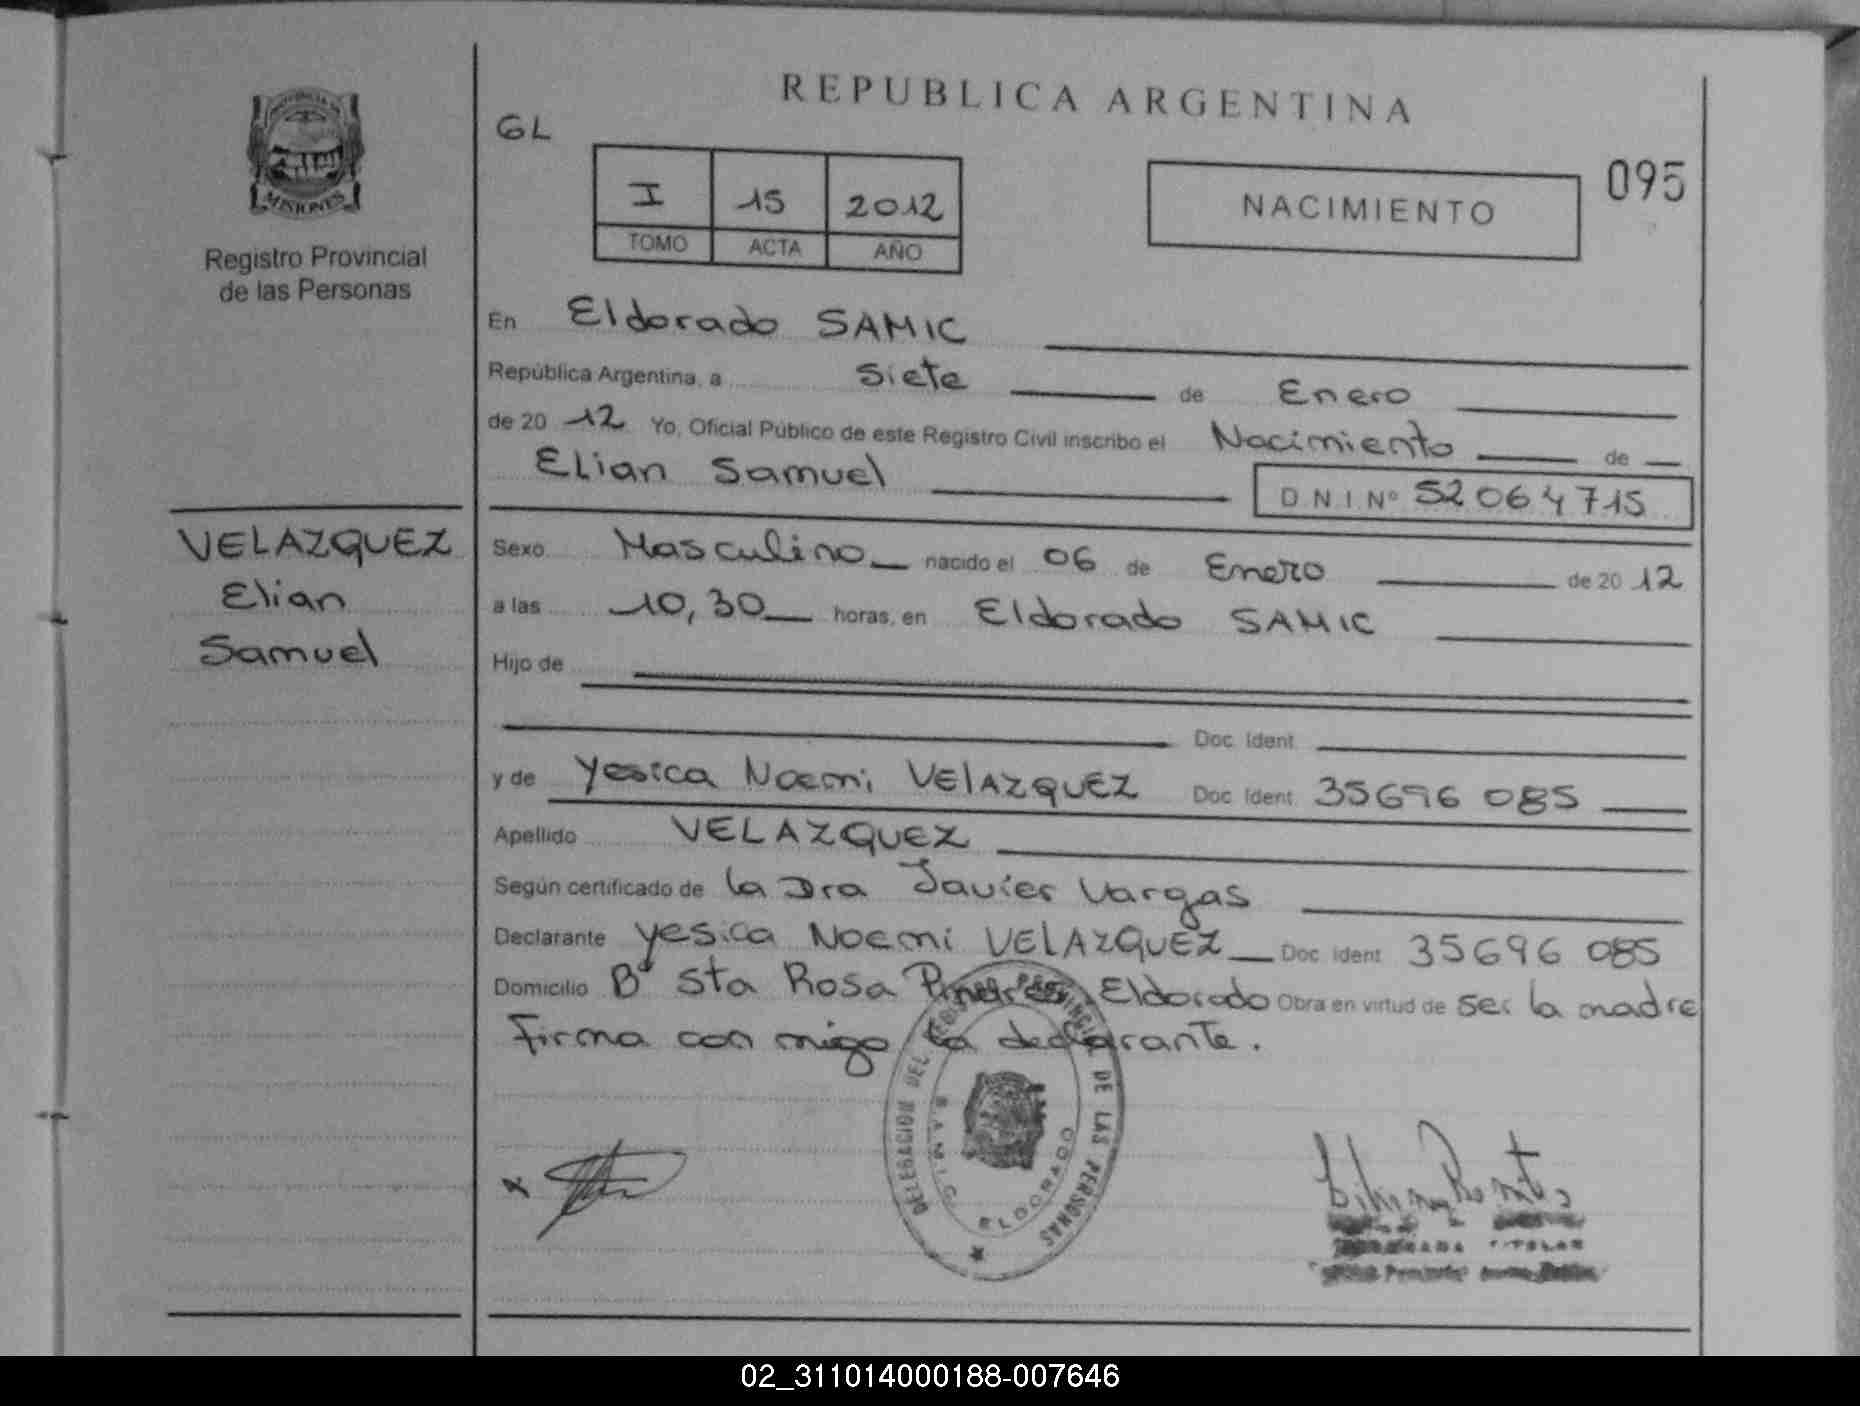 REPUBLICA ARGENTINA
GL
I 15 2012
TOMO ACTA AÑO
NACIMIENTO
095
MISIONES
Registro Provincial
de las Personas
En Eldorado SAMIC
República Argentina, a Siete de Enero
de 20 12 Yo, Oficial Público de este Registro Civil inscribo el Nacimiento de
Elian Samuel D.N.I. Nº 52 064 715
VELAZQUEZ
Elian
Samuel
Sexo Masculino nacido el 06 de Enero de 20 12
a las 10,30 horas, en Eldorado SAMIC
Hijo de
Doc. Ident.
y de Yesica Noemi VELAZQUEZ Doc. Ident. 35696 085
Apellido VELAZQUEZ
Según certificado de la Dra Javier Vargas
Declarante Yesica Noemi VELAZQUEZ Doc. Ident. 35696 085
Domicilio Bº Sta Rosa Eldorado Obra en virtud de ser la madre
Firma con migo la declarante.
DELEGACION DEL REGISTRO PROVINCIAL DE LAS PERSONAS
S.A.M.I.C. ELDORADO
x
TITULAR
02_311014000188-007646